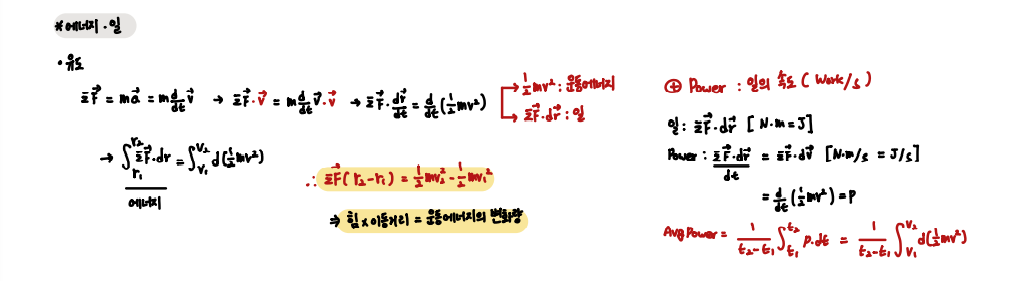 * 에너지 · 일
· 유도
ΣF⃗ = ma⃗ = m d/dt v⃗ → ΣF⃗ · v⃗ = m d/dt v⃗ · v⃗ → ΣF⃗ · dr⃗/dt = d/dt (1/2 mv²)
→ 1/2 mv² : 운동에너지
→ ΣF⃗ · dr⃗ : 일
→ ∫_{r₁}^{r₂} ΣF⃗ · dr = ∫_{v₁}^{v₂} d(1/2 mv²)
에너지
∴ ΣF⃗ (r₂ - r₁) = 1/2 mv₂² - 1/2 mv₁²
⇒ 힘 × 이동거리 = 운동에너지의 변화량
⊕ Power : 일의 속도 ( Work/s )
일 : ΣF⃗ · dr⃗ [ N·m = J ]
Power : ΣF⃗ · dr⃗ / dt = ΣF⃗ · dv⃗ [ N·m/s = J/s ]
= d/dt (1/2 mv²) = P
Avg Power = 1/(t₂-t₁) ∫_{t₁}^{t₂} P·dt = 1/(t₂-t₁) ∫_{v₁}^{v₂} d(1/2 mv²)